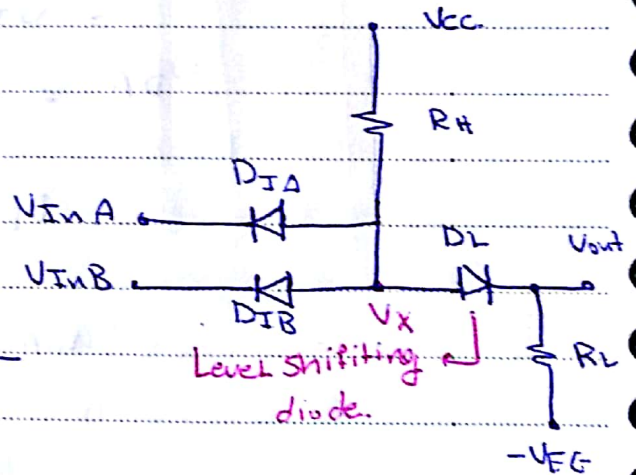 Vcc.
RH
DIA
VInA
DL
Vout
VInB
DIB
Vx
Level shifiting
diode.
RL
-VEE